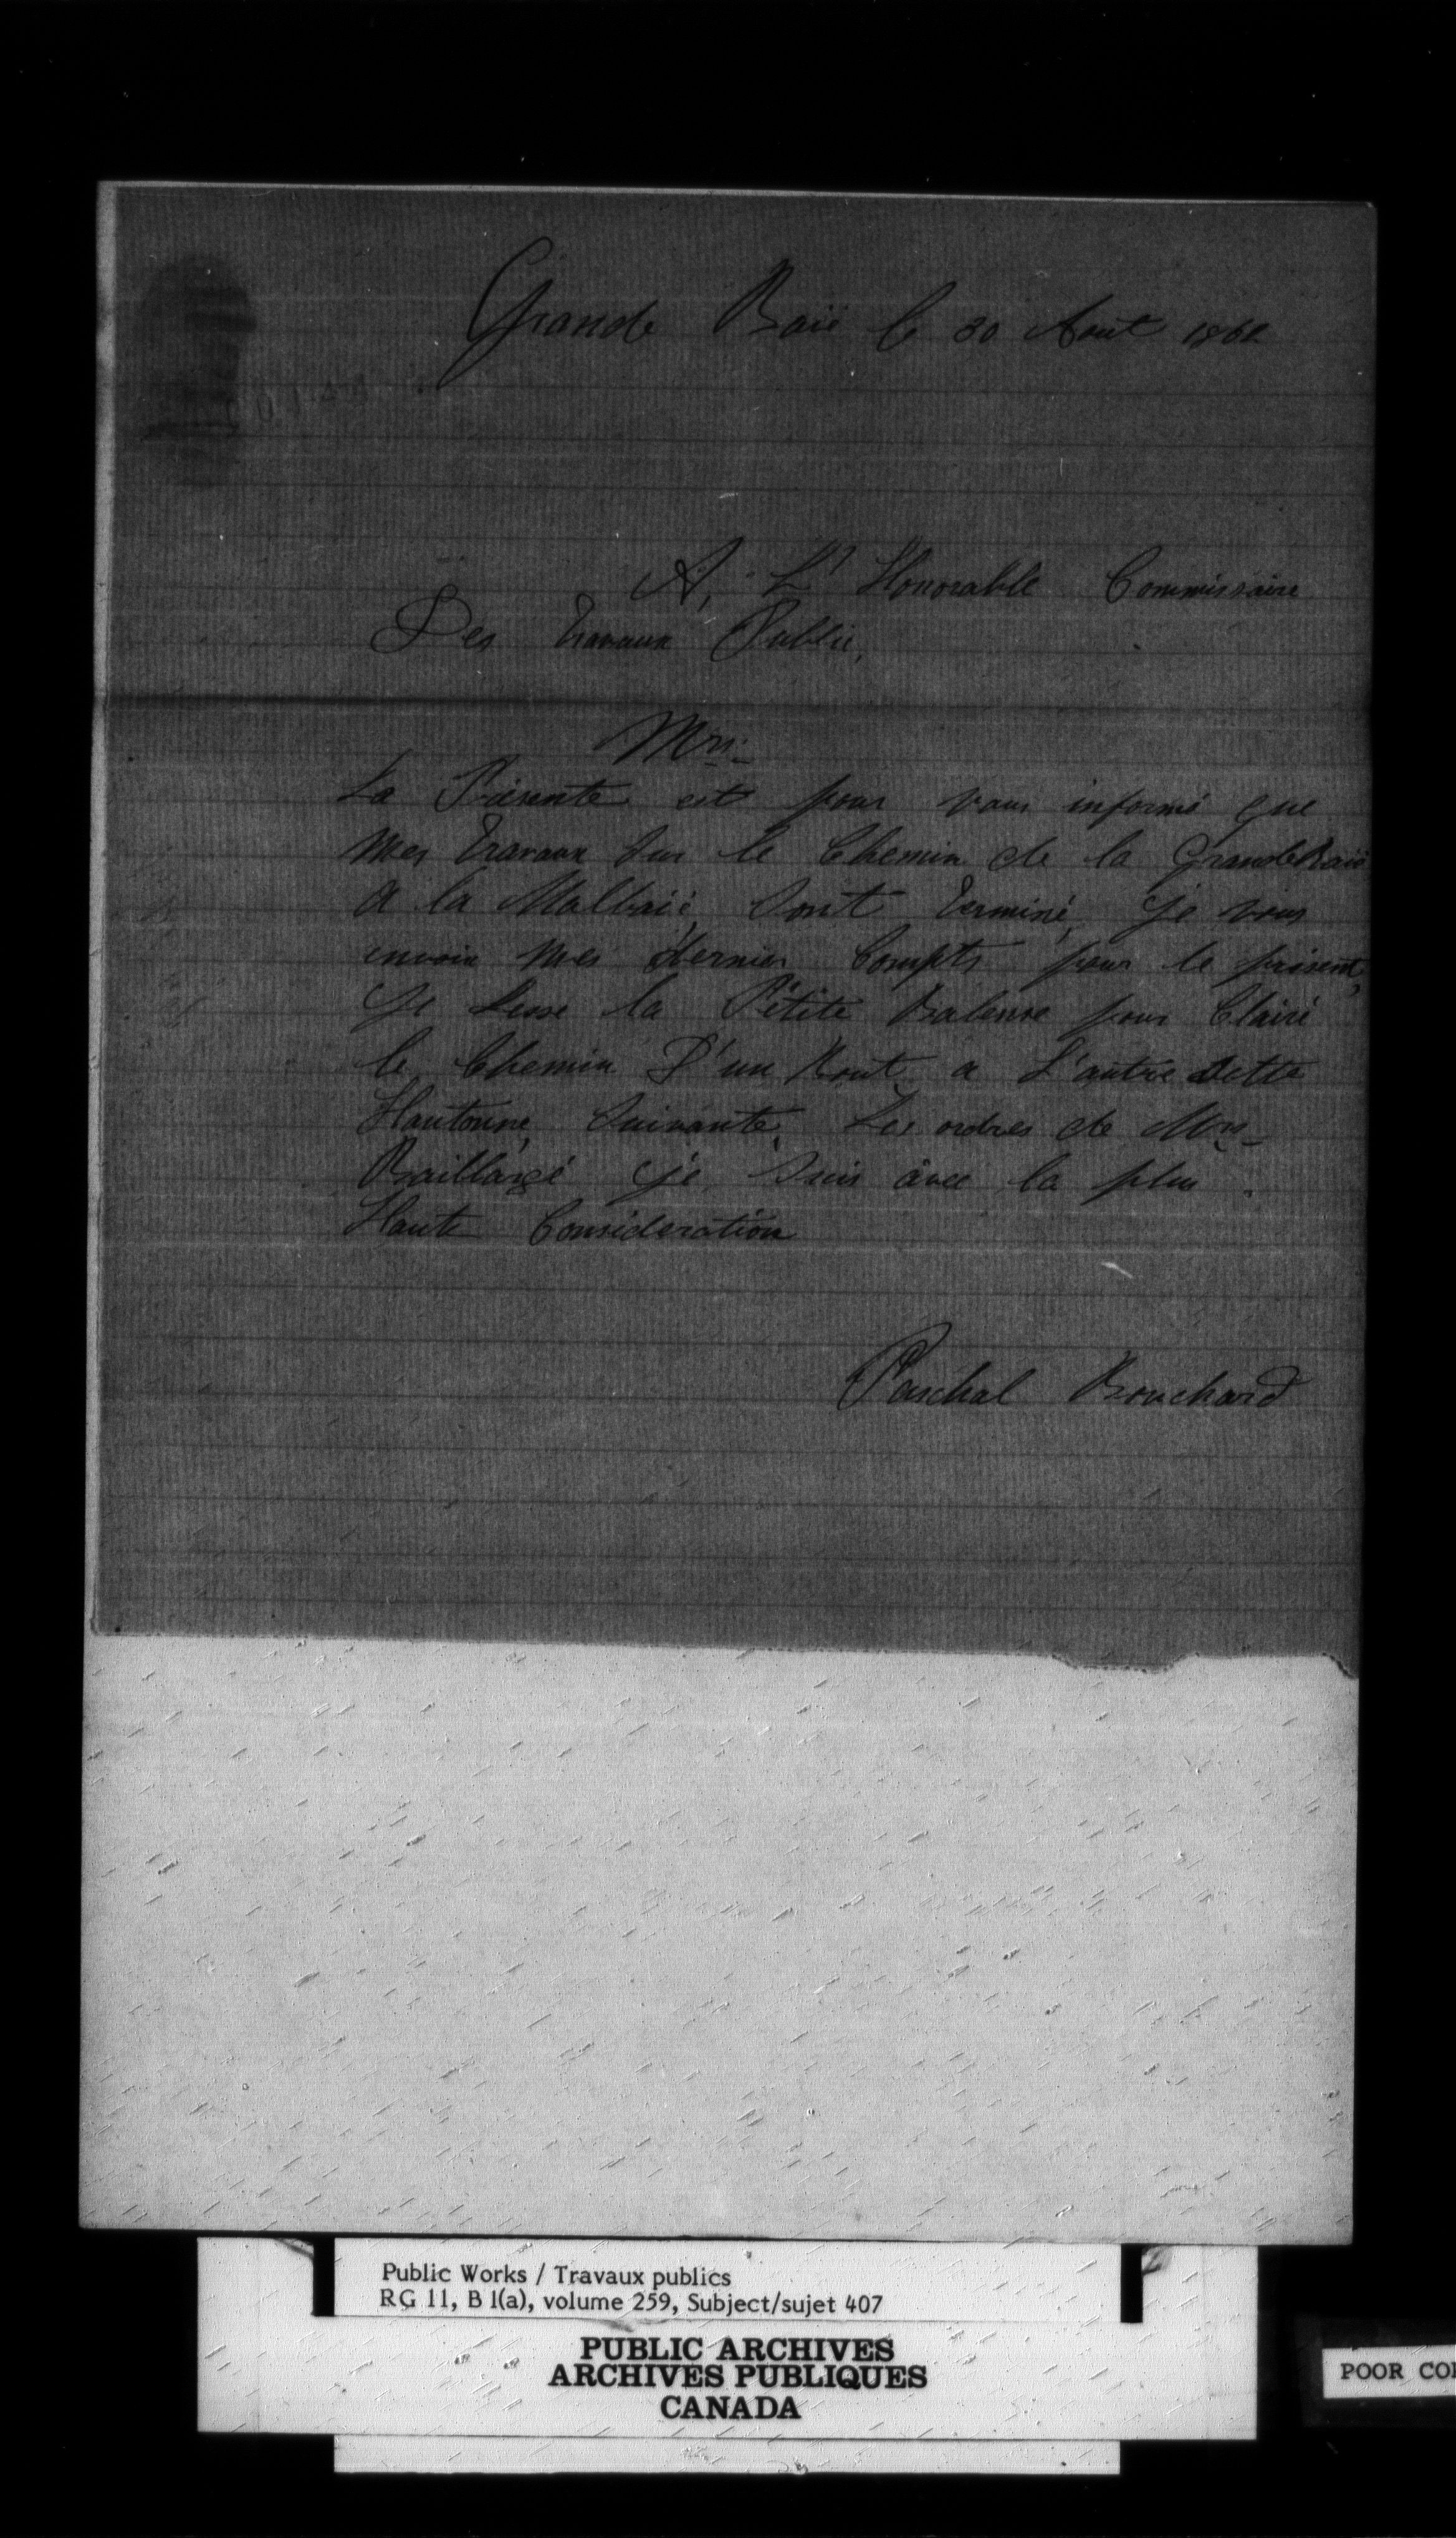 Grande Baië le 30 Aout 1862
A, L' Honorable Commissaire
Des Travaux Public,
Mrs:
La Présente est pour vous informé que
mes Travaux Sur le Chemin de la Grande Baië
a la Malbaié, Sont Terminé, je vous
envoie mes dernier Compts pour le présent,
Je Lesse la Pétite Balense pour Clairé
le Chemin D'un Bout a L'autre Sette
Hautonne, Suivante, Les ordres de Mrs
Baillargé je, Suis avec la plus
Haute Consideration
Paschal Bouchard
Public Works / Travaux publics
RG 11, B 1(a), volume 259, Subject/sujet 407
PUBLIC ARCHIVES
ARCHIVES PUBLIQUES
CANADA
POOR